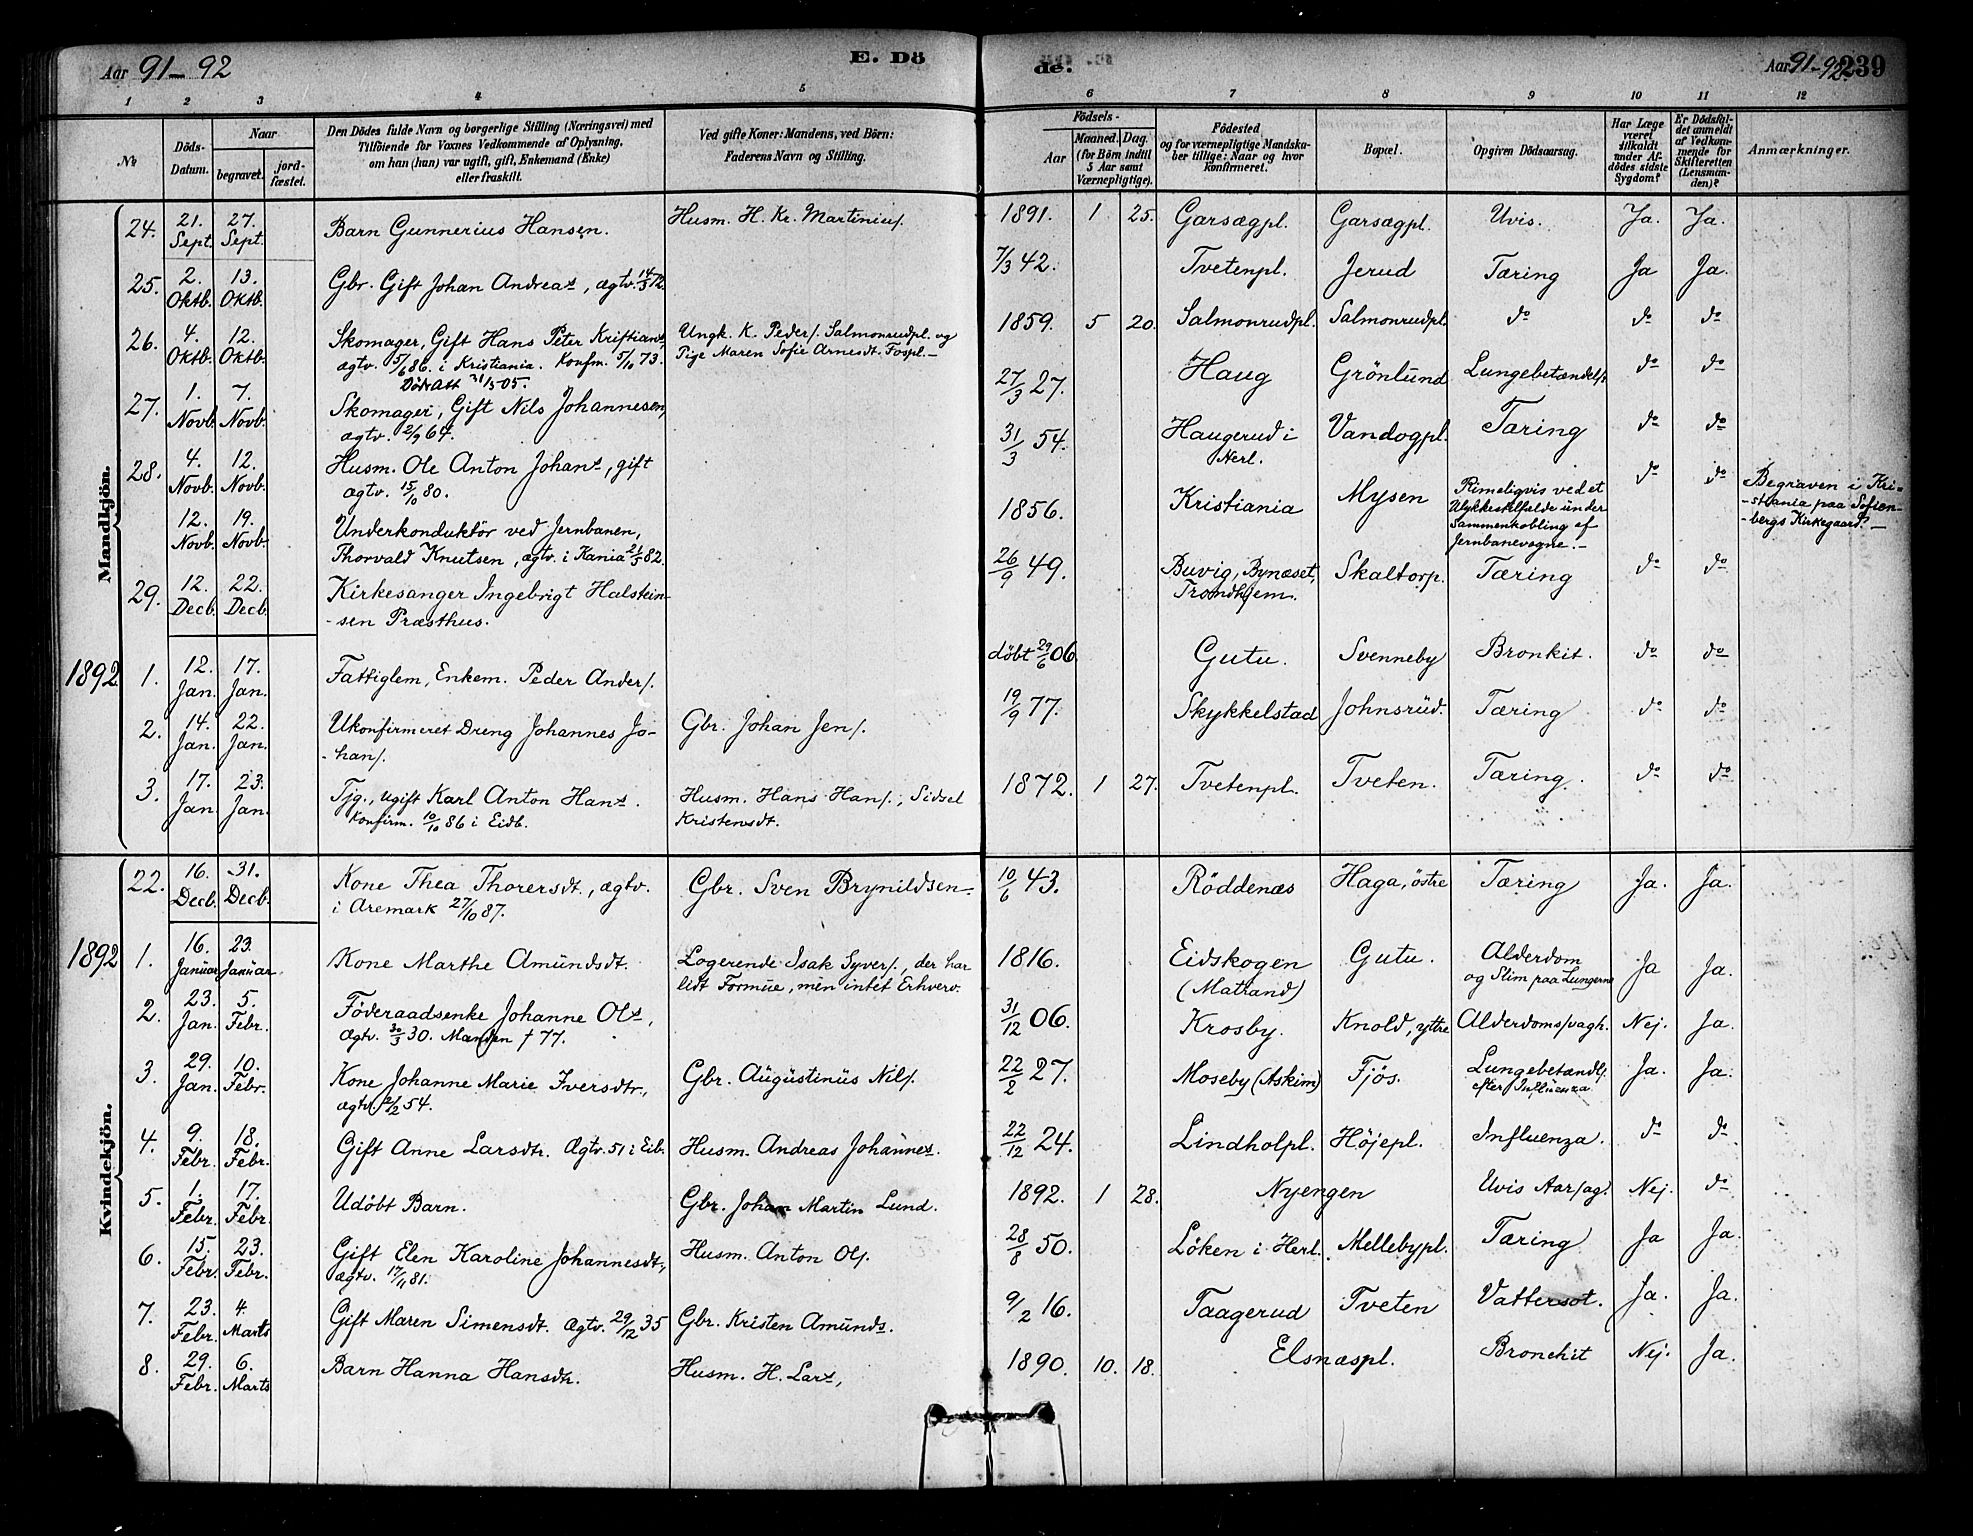 Aar 91-92
E. Dö
de.
Aar 91-92. 239
1 2 3 4 5 6 7 8 9 10 11 12
No
Döds-Datum.
Naar
begravet.
jord-fæstet.
Den Dödes fulde Navn og borgerlige Stilling (Næringsvei) med
Tilföiende for Voxnes Vedkommende af Oplysning,
om han (hun) var ugift, gift, Enkemand (Enke)
eller fraskilt.
Ved gifte Koner: Mandens, ved Börn:
Faderens Navn og Stilling.
Födsels-
Aar
Maaned. Dag.
(for Börn indtil
5 Aar samt
Værnepligtige).
Födested
og for værnepligtige Mandska-
ber tillige: Naar og hvor
konfirmeret.
Bopæl.
Opgiven Dödsaarsag.
Har Læge
været
tilkaldt
under Af-
dödes sidste
Sygdom?
Er Dödsfal-
det anmeldt
af Vedkom-
mende for
Skifteretten
(Lensman-
den)?
Anmærkninger.
Mandkjön.
24. 21. Sept. 27. Sept. Barn Gunnerius Hansen. Husm. H. Kr. Martinius/. 1891. 1 25. Garsægpl. Garsægpl. Uvis. Ja. Ja.
25. 2. Oktb. 13. Oktb. Gbr. Gift Johan Andreas, ægtv. 14/3 72. 7/3 42. Tvetenpl. Jerud Tæring Ja Ja.
26. 4. Oktb. 12. Oktb. Skomager, Gift Hans Peter Kristians, Ungk. K. Peder/. Salmonrudpl. og 1859. 5 20. Salmonrudpl. Salmonrudpl. do do do
ægtv. 5/6 86. i Kristiania. Konfm. 5/10 73. Pige Maren Sofie Arnesdt. Fospl.-
Dödsatt 31/5 05.
27. 1. Novb. 7. Novb. Skomager, Gift Nils Johannesen, 27/3 27. Haug Grönlund Lungebetændels/ do do
ægtv. 2/9 64.
28. 4. Novb. 12. Novb. Husm. Ole Anton Johans, gift 31/3 54. Haugerud i Herl. Vandogpl. Tæring do do
ægtv. 15/10 80.
12. Novb. 19. Novb. Underkonduktör ved Jernbanen, 1856. Kristiania Mysen Rimeligvis ved et do do Begraven i Kri-
Thorvald Knutsen, ægtv. i Kania 21/5 82. Ulykkestilfælde under -stiania paa Sofien-
Sammenkobling af -bergs Kirkegaard.-
Jernbanevogne.-
29. 12. Decb. 22. Decb. Kirkesanger Ingebrigt Halstein- 26/9 49. Buvig, Bynæset, Skaltorp. Tæring do do
-sen Præsthus. Trondhjem.
1892. 1. 12. Jan. 17. Jan. Fattiglem, Enkem. Peder Anders/. döbt 29/6 06. Gutu. Svenneby Bronkit. do do
2. 14. Jan. 22. Jan. Ukonfirmeret Dreng Johannes Jo- Gbr. Johan Jen/. 19/9 77. Skykkelstad Johnsrud. Tæring do do
-han/.
3. 17. Jan. 23. Jan. Tjg., ugift Karl Anton Hans. Husm. Hans Han/., Sidsel 1872. 1 27. Tvetenpl. Tveten. Tæring. do do
Konfirm. 10/10 86 i Eidb. Kristensdt.
Kvindekjön.
22. 16. Decb. 31. Decb. Kone Thea Thorersdt, ægtv. Gbr. Sven Brynildsen- 10/6 43. Röddenæs Haga, östre Tæring Ja. Ja.
i Aremark 27/10 87.
1892 1. 16. Januar 23. Januar. Kone Marthe Amundsdt. Logerende Isak Syver/., der har 1816. Eidskogen Gutu. Alderdom Ja Ja.
lidt Formue, men intet Erhverv. (Matrand) og Slim paa Lungerne
2. 23. Jan. 5. Febr. Föderaadsenke Johanne Ols, 31/12 06. Krosby. Knold, yttre Alderdoms/vagh. Nej. Ja.
ægtv. 30/3 30. Manden † 77.
3. 29. Jan. 10. Febr. Kone Johanne Marie Iversdtr., Gbr. Augustinus Nils/. 22/2 27. Moseby (Askim) Fjös. Lungebetændl/. Ja. Ja.
ægtv. 2/2 54. efter Influenza.
4. 9. Febr. 18. Febr. Gift Anne Larsdtr. Ægtv. 51 i Eib. Husm. Andreas Johannes. 22/12 24. Lindholpl. Höjepl. Influenza. do do
5. 1. Febr. 17. Febr. Udöbt Barn. Gbr. Johan Martin Lund. 1892. 1 28. Nyengen Uvis Aar/ag. Nej. do
6. 15. Febr. 23. Febr. Gift Elen Karoline Johannesdt., Husm. Anton Ol/. 28/8 50. Löken i Herl. Mellebypl. Tæring Ja Ja.
ægtv. 17/11 81.
7. 23. Febr. 4. Marts Gift Maren Simensdt. Ægtv. 29/12 35 Gbr. Kristen Amunds. 9/2 16. Taagerud Tveten Vattersot. Ja. Ja.
8. 29. Febr. 6. Marts Barn Hanna Hansdtr. Husm. H. Lars, 1890. 10. 18. Elsnæspl. Bronchit Nej. Ja.